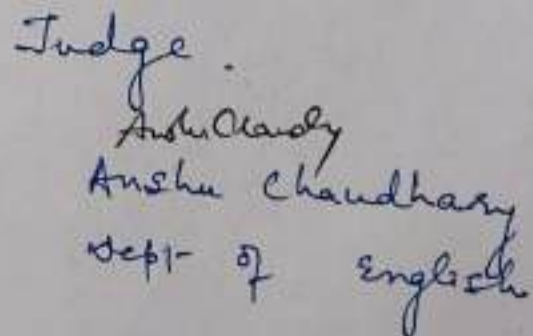 Judge.
Anshu Chaudhary
Dept- of English